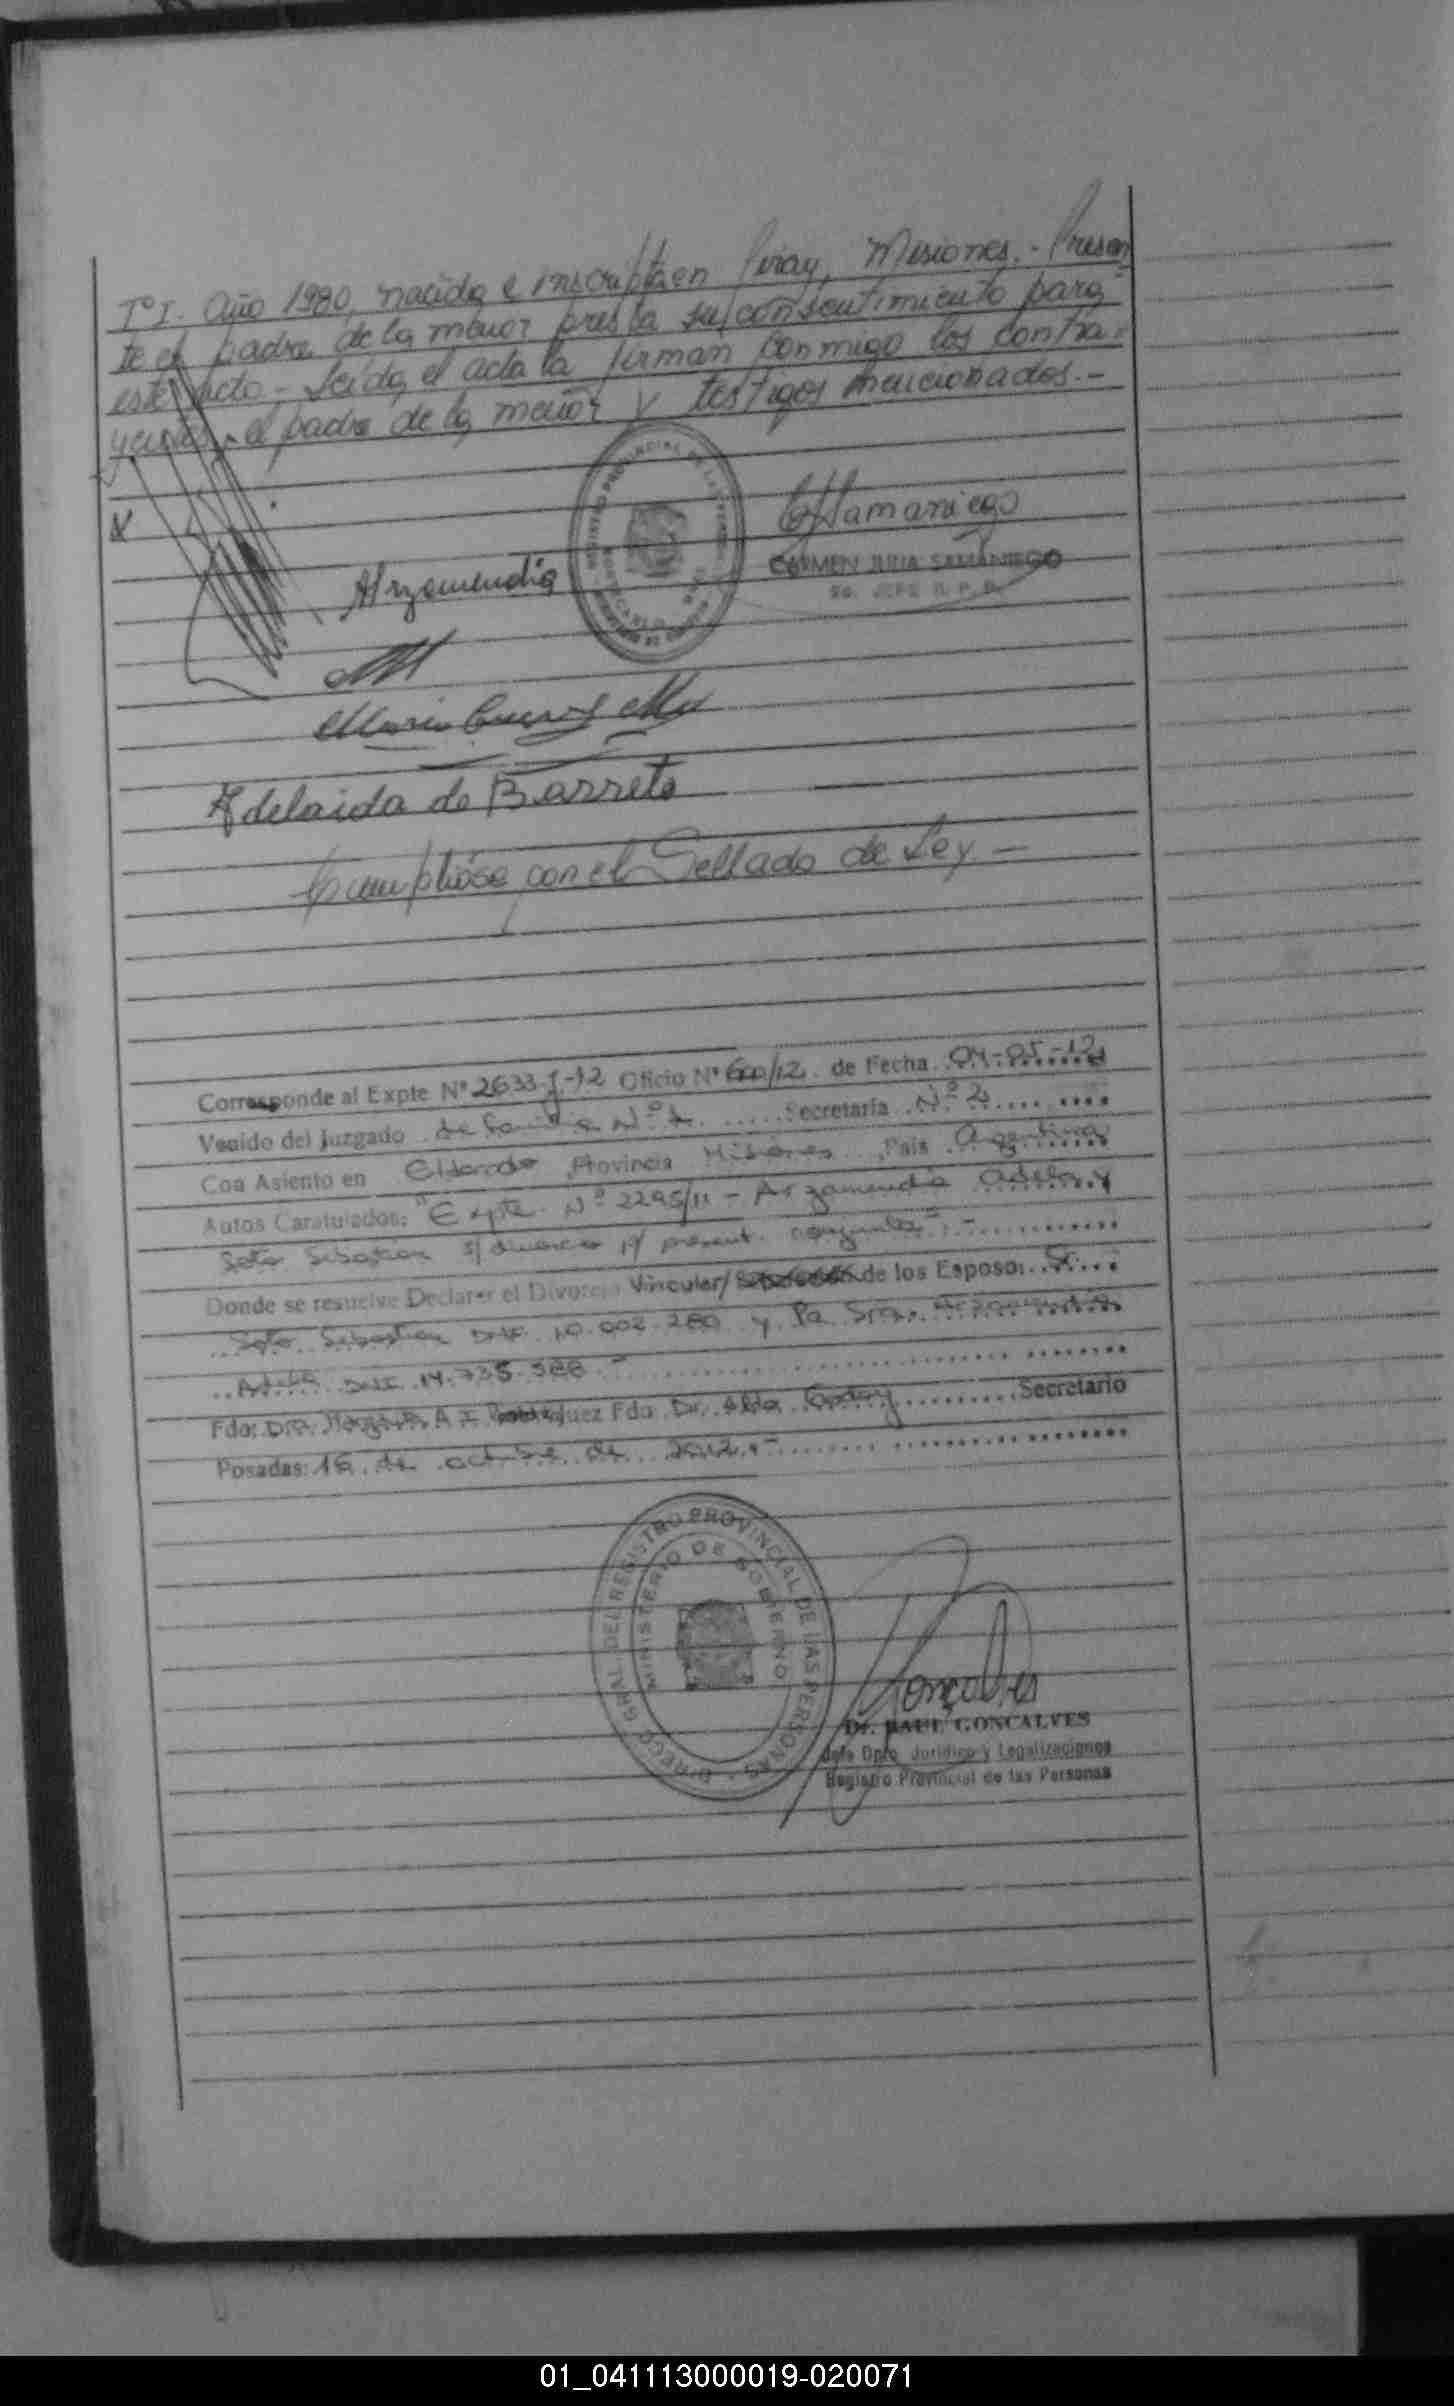 Tº I. Año 1980, nacida e inscripta en Piray, Misiones.- Presen
te el padre de la menor presta su consentimiento para
este acto - Leída el acta la firman conmigo los contra-
yentes, el padre de la menor y testigos mencionados.-
Arzamendia
CARMEN JULIA SAMANIEGO
Adelaida de Barreto
Cumplióse con el Sellado de Ley -
Corresponde al Expte Nº 2633-J-12 Oficio Nº /12 de Fecha 04-05-12
Venido del Juzgado de Familia Nº Secretaría Nº 2
Con Asiento en Eldorado Provincia Misiones País Argentina
Autos Caratulados: "Expte. Nº 2295/11 - Arzamendia Adela y
Soto Sebastian s/ divorcio p/ present. conjunta".-
Donde se resuelve Declarar el Divorcio Vincular/ de los Esposo: Sr.
Soto Sebastian DNI 10.002.280 y la Sra. Arzamendia
Adela DNI 14.735.568 -
Fdo: Dra. Margarita A. I. Juez Fdo Dr. Aldo Godoy Secretario
Posadas: 16 de octubre de 2012.-
DIRECC. GRAL. DEL REGISTRO PROVINCIAL DE LAS PERSONAS
MINISTERIO DE GOBIERNO
Gonçalves
Dr. RAUL GONCALVES
Jefe Dpto. Jurídico y Legalizaciones
Registro Provincial de las Personas
01_041113000019-020071